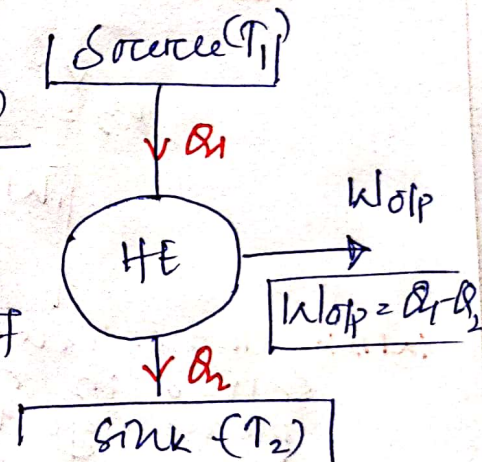 Source (T₁)
Q₁
W o/p
HE
W o/p = Q₁-Q₂
Q₂
Sink (T₂)